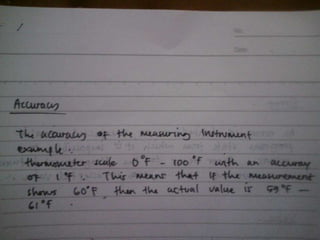 No.
Date
Accuracy
The accuracy of the measuring Instrument
example.
thermometer scale 0°F - 100°F with an accuracy
of 1°F. This means that if the measurement
shows 60°F, then the actual value is 59°F —
61°F.